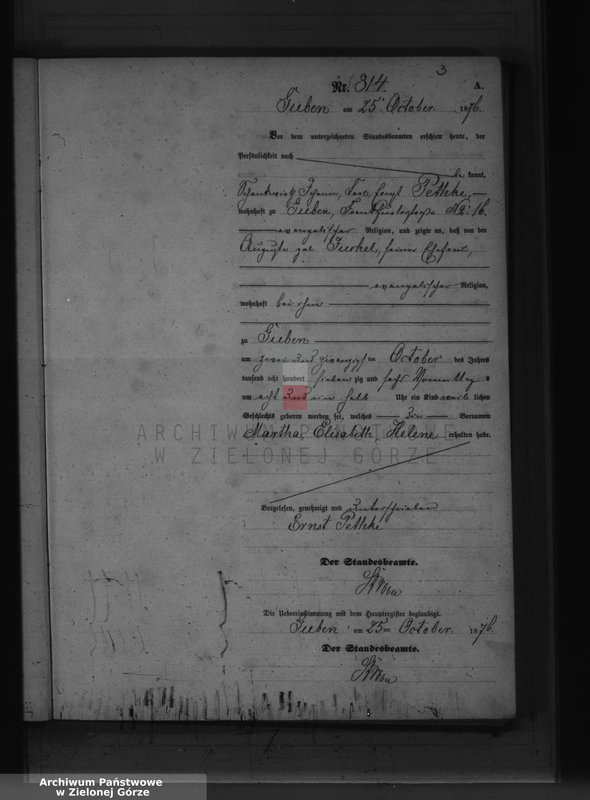 3
Nr. 314. A.
Guben am 25ten October 1876.
Vor dem unterzeichneten Standesbeamten erschien heute, der
Persönlichkeit nach
be kannt,
Pethke,
wohnhaft zu Guben, No 16.
evangelischer Religion, und zeigte an, daß von der
Auguste geb. seiner Ehefrau,
evangelischer Religion,
wohnhaft bei ihm
zu Guben
am zwei und zwanzigsten October des Jahres
tausend acht hundert sieben zig und sechs Vormittags
um acht und ein halb Uhr ein Kind weib lichen
Geschlechts geboren worden sei, welches Vornamen
Martha, Elisabeth, Helene erhalten habe.
ARCHIWUM PAŃSTWOWE
W ZIELONEJ GÓRZE
Vorgelesen, genehmigt und unterschrieben
Ernst Pethke
Der Standesbeamte.
Die Uebereinstimmung mit dem Hauptregister beglaubigt.
Guben am 25ten October 1876.
Der Standesbeamte.
Archiwum Państwowe
w Zielonej Górze